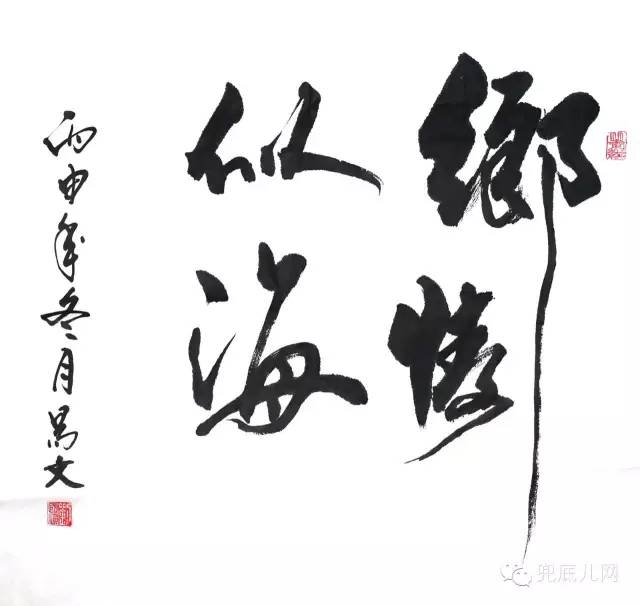 鄉情
似海
丙申年冬月文
兜底儿网